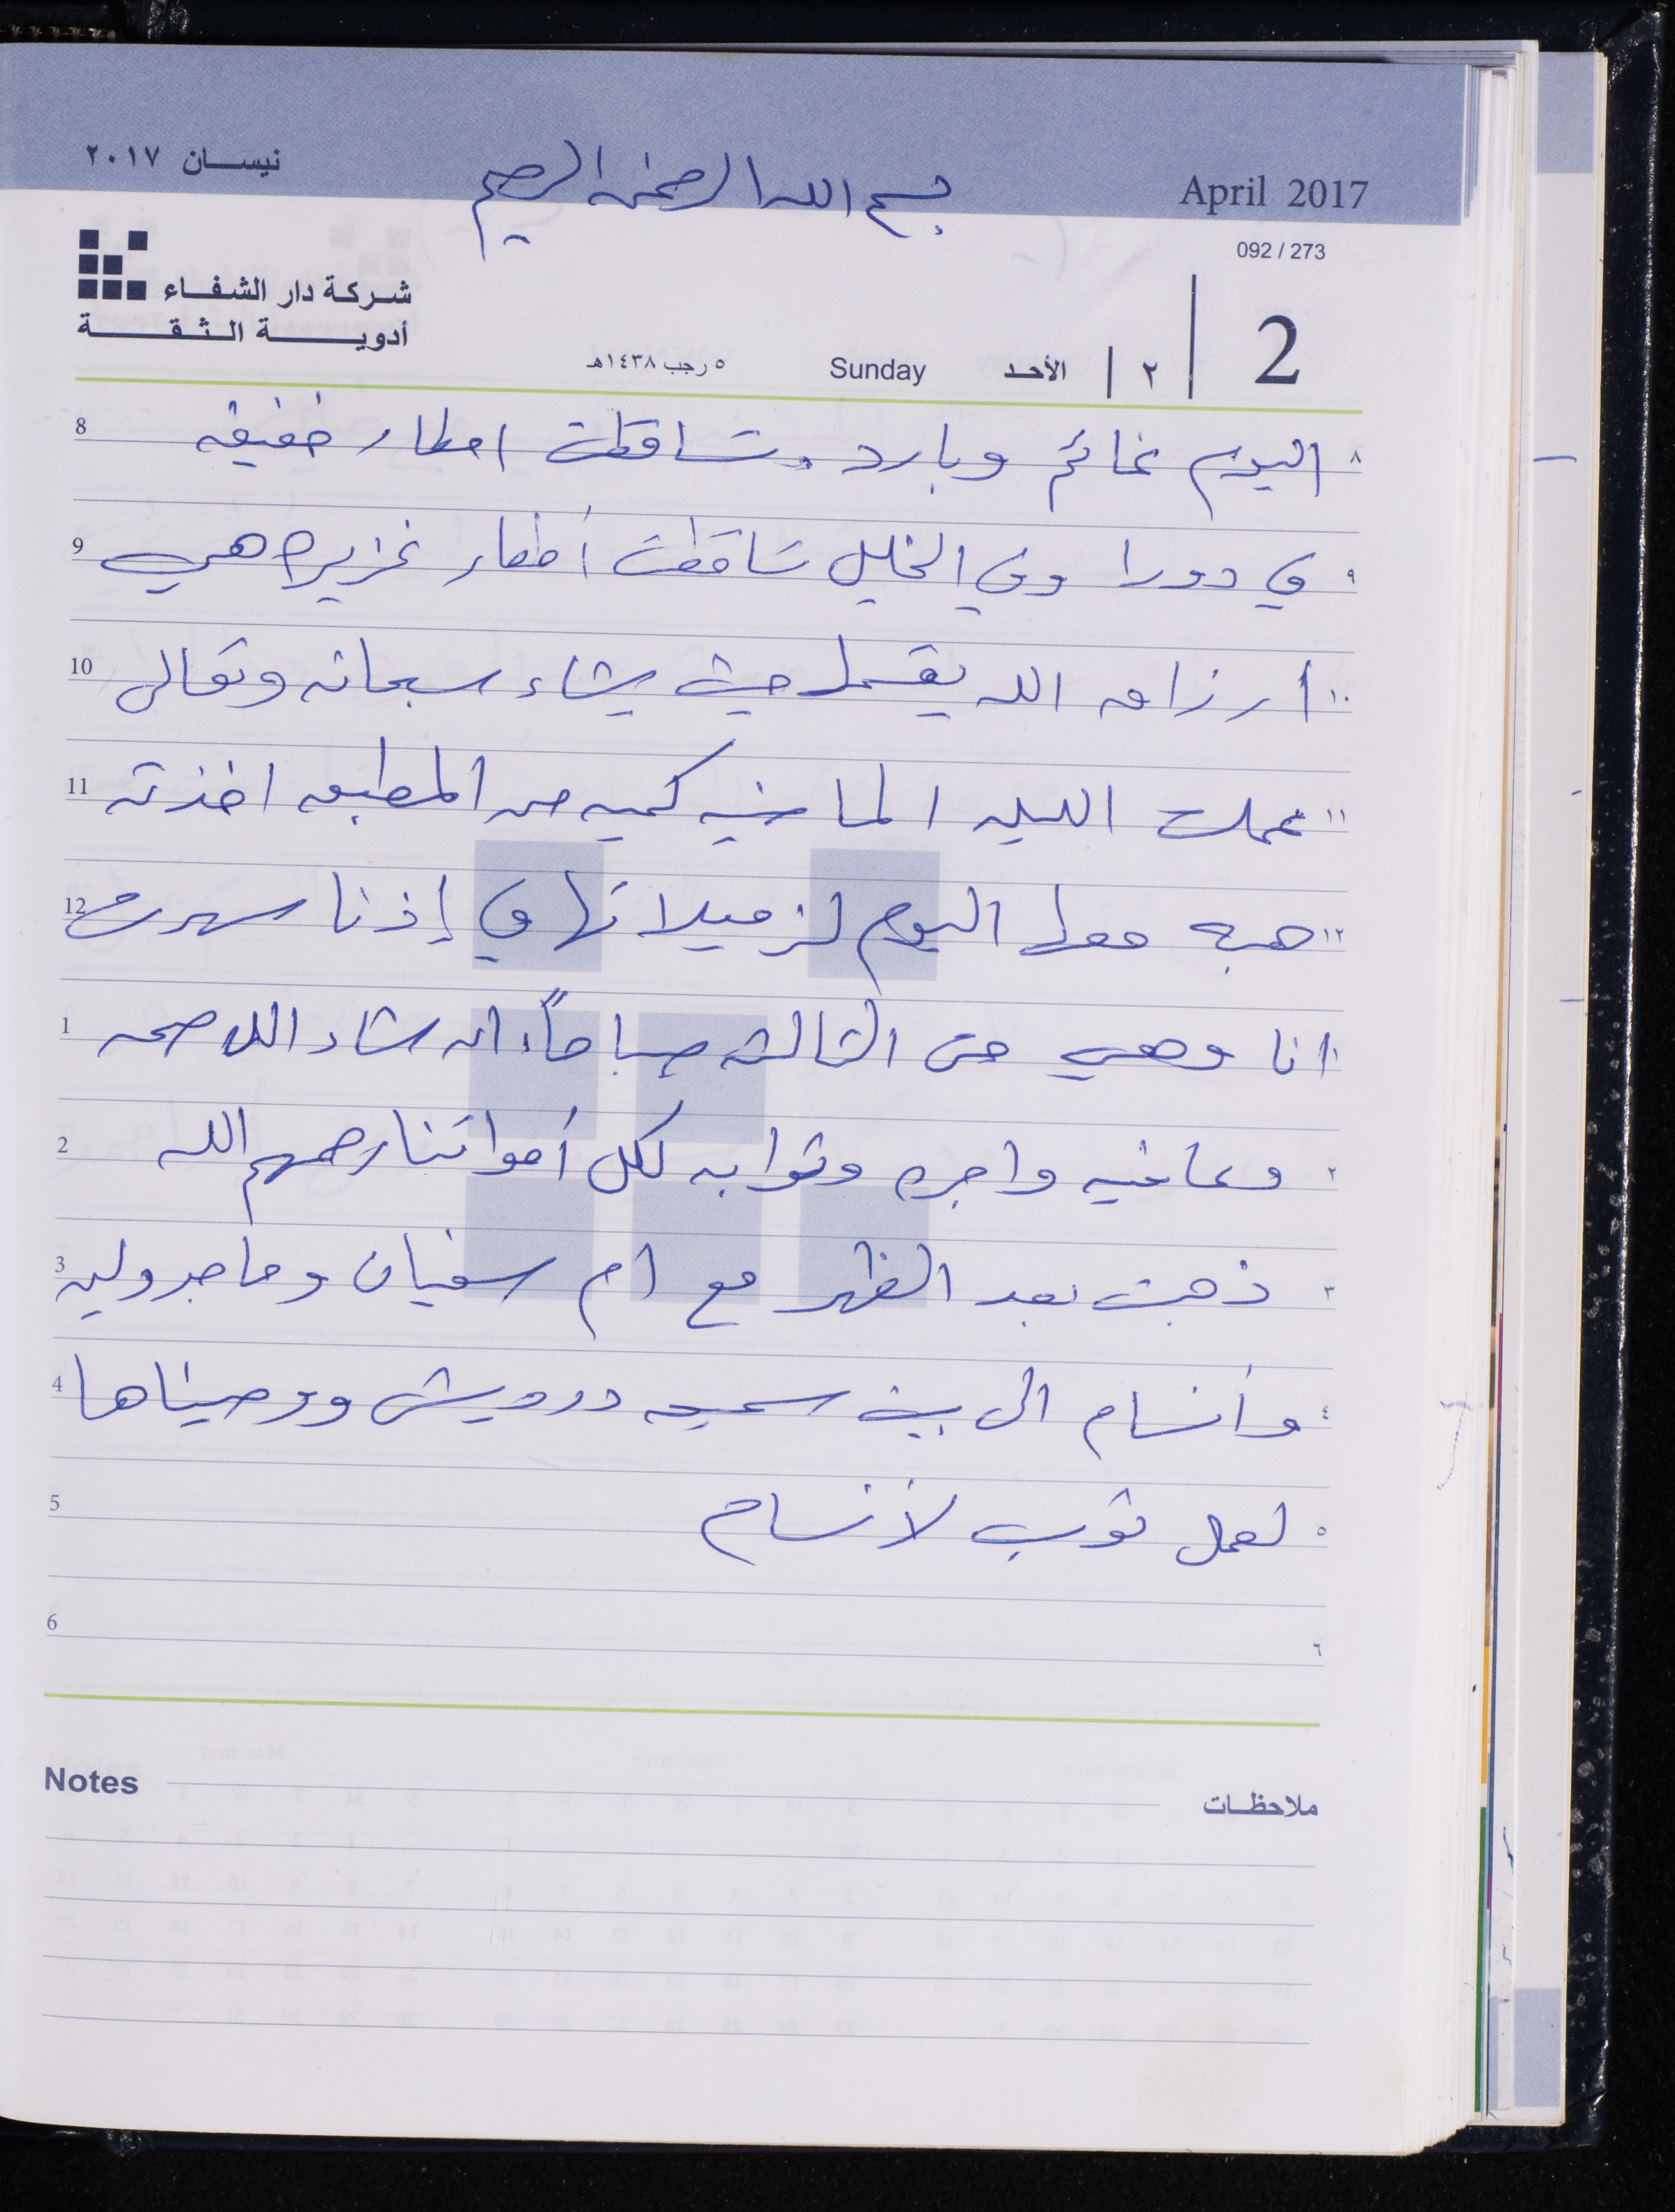 نيسان ٢٠١٧
بسم الله الرحمن الرحيم
April 2017
092 / 273
شركة دار الشفاء
أدوية الثقة
2 | ٢ | الأحد Sunday ٥ رجب ١٤٣٨هـ
8 اليوم غائم وبارد. تساقطت امطار خفيفه ٨
9 في دورا وفي الخليل تساقطت أمطار غزيره هي ٩
10 ارزاق الله يقسمها حيث يشاء سبحانه وتعالى ١٠
11 عملت الليله الماضيه كميه من المطبعه اخذته ١١
12 هبه معها اليوم لزميلاتها في إذنا سهرت ١٢
1 انا وهي حتى الثالثه صباحاً، ان شاء الله صحه ١
2 وعافيه واجره وثوابه لكل أمواتنا رحمهم الله ٢
3 ذهبت بعد الظهر مع ام سفيان وماجدولين ٣
4 وأنسام الى بيت سميحه درويش ووصيناها ٤
5 لعمل ثوب لأنسام ٥
6 ٦
Notes ملاحظات